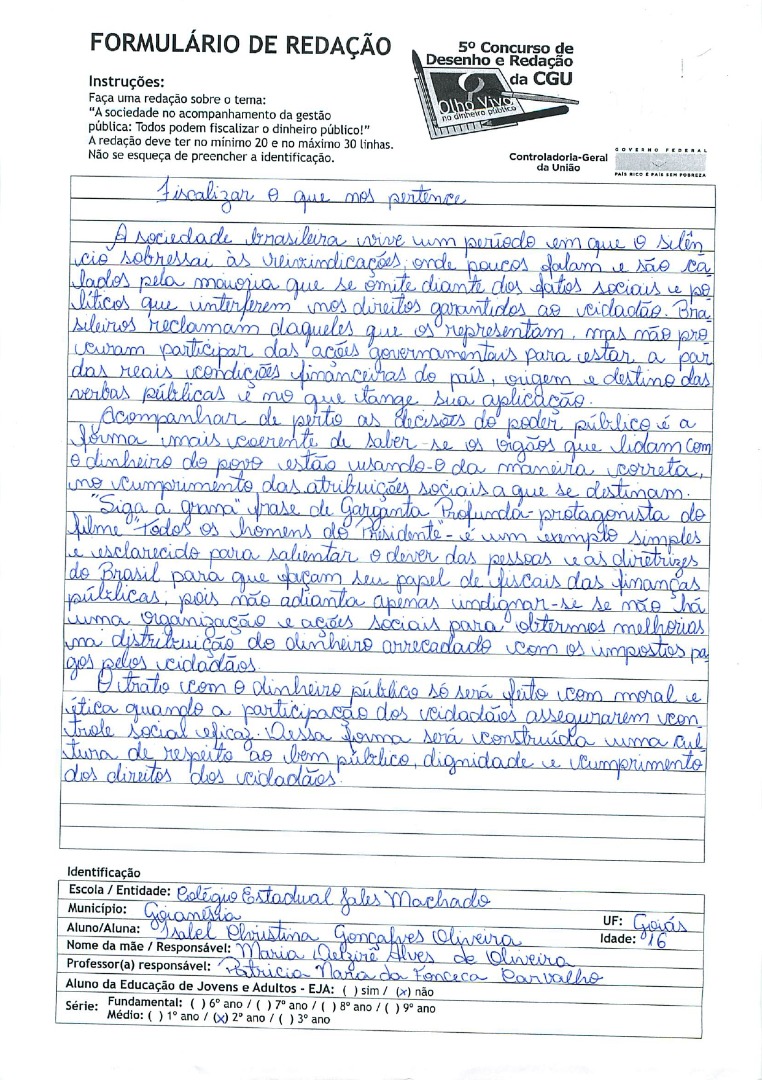 FORMULÁRIO DE REDAÇÃO
5º Concurso de
Desenho e Redação
da CGU
Olho Vivo
no dinheiro público
Instruções:
Faça uma redação sobre o tema:
"A sociedade no acompanhamento da gestão
pública: Todos podem fiscalizar o dinheiro público!"
A redação deve ter no mínimo 20 e no máximo 30 linhas.
Não se esqueça de preencher a identificação.
Controladoria-Geral
da União
GOVERNO FEDERAL
PAÍS RICO É PAÍS SEM POBREZA
Fiscalizar o que nos pertence
A sociedade brasileira vive um período em que o silên
cio sobressai às reivindicações, onde poucos falam e são ca-
lados pela maioria que se omite diante dos fatos sociais e po-
líticos que interferem nos direitos garantidos ao cidadão. Bra-
sileiros reclamam daqueles que os representam, mas não pro-
curam participar das ações governamentais para estar a par
das reais condições financeiras do país, origem e destino das
verbas públicas e no que tange sua aplicação.
Acompanhar de perto as decisões do poder público é a
forma mais coerente de saber-se se os orgãos que lidam com
o dinheiro do povo estão usando-o da maneira correta,
no cumprimento das atribuições sociais a que se destinam.
"Siga a grana" frase de Garganta Profunda-protagonista do
filme "Todos os homens do Presidente"- é um exemplo simples
e esclarecido para salientar o dever das pessoas e as diretrizes
do Brasil para que façam seu papel de fiscais das finanças
públicas, pois não adianta apenas indignar-se se não há
uma organização e ações sociais para obtermos melhorias
na distribuição do dinheiro arrecadado com os impostos pa-
gos pelos cidadãos.
O trato com o dinheiro público só será feito com moral e
ética quando a participação dos cidadãos assegurarem con-
trole social eficaz. Dessa forma será construída uma cul-
tura de respeito ao bem público, dignidade e cumprimento
dos direitos dos cidadãos.
Identificação
Escola / Entidade: Colégio Estadual Jales Machado
Município: Goianésia UF: Goiás
Aluno/Aluna: Isabel Christina Gonçalves Oliveira Idade: 16
Nome da mãe / Responsável: Maria Delzirê Alves de Oliveira
Professor(a) responsável: Patricia Nara da Fonceca Carvalho
Aluno da Educação de Jovens e Adultos - EJA: ( ) sim / (x) não
Série: Fundamental: ( ) 6º ano / ( ) 7º ano / ( ) 8º ano / ( ) 9º ano
Médio: ( ) 1º ano / (x) 2º ano / ( ) 3º ano